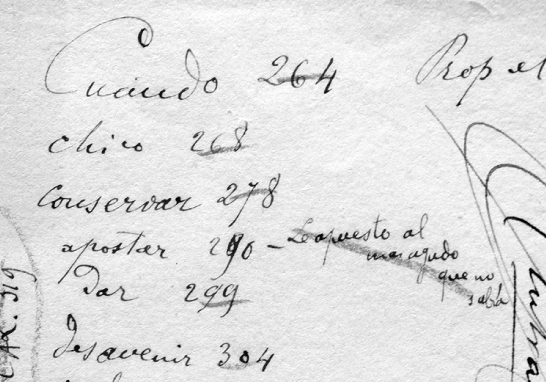 Cuando 264
chico 268
conservar 278
apostar 290 - Le apuesto al
mas agudo
que no
sabía
Dar 299
desavenir 304
Prop
CAL. 319